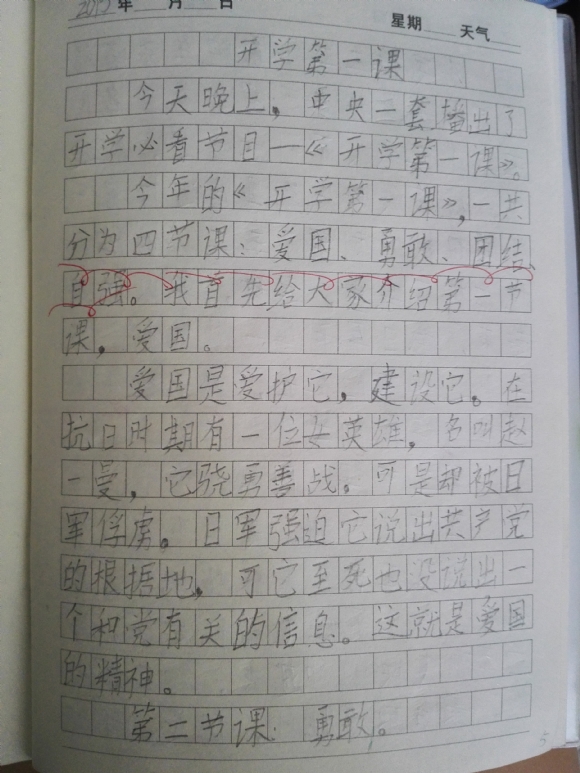 2015年 月 日
星期 天气
开学第一课
今天晚上，中央一套播出了
开学必看节目—《开学第一课》。
今年的《开学第一课》，一共
分为四节课：爱国、勇敢、团结、
自强。我首先给大家介绍第一节
课，爱国。
爱国是爱护它，建设它。在
抗日时期有一位女英雄，名叫赵
一曼，它骁勇善战。可是却被日
军俘虏。日军强迫它说出共产党
的根据地，可它至死也没说出一
个和党有关的信息。这就是爱国
的精神。
第二节课：勇敢。
5